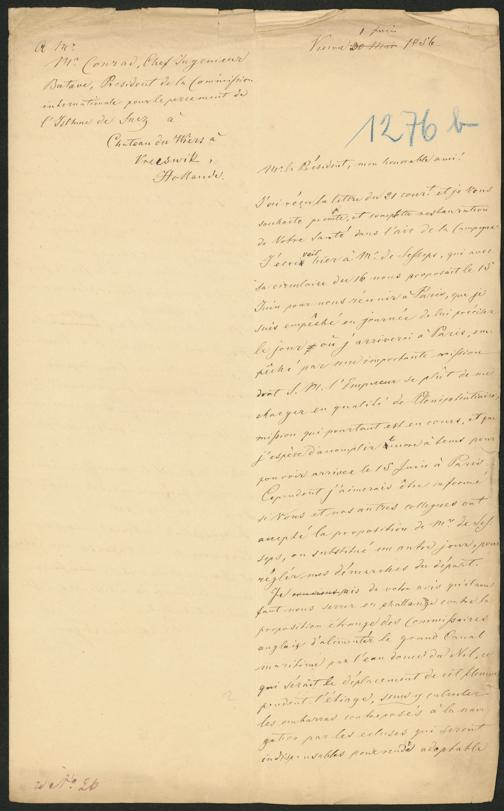 1 juin
Vienne 30 Mai 1856.
A Mr.
Mr. Conrad, Chef Ingenieur
Batave, President de la Commission
internationale pour le percement de
l'Isthme de Suez à
Chateau du Wiers à
Vreeswik,
Hollande.
1276 b
Mr. le Président, mon honorable ami!
J'ai reçu la lettre du 21 court et je Vous
souhaite prompte, et complette restauration
de Votre Santé dans l'air de la Campagne
J'écrivois hier à Mr. de Lesseps, qui avec
sa circulaire du 16 nous proposait le 15
Juin pour nous réunir à Paris, que je
suis empêché en journée de lui préciser
le jour où j'arriverai à Paris, em-
pêché par une importante mission
dont S. M. l'Empereur se plût de me
charger en qualité de Plénipotentiaire,
mission qui pourtant est en cours, et que
j'espère d'accomplir encore à tems pour
pouvoir arriver le 15 Juin à Paris.
Cependant j'aimerais être informé
si Vous et nos autres collegues ont
accepté la proposition de Mr. de Les-
seps, ou substitué un autre jour, pour
régler mes démarches du départ.
Je suis de votre avis qu'il nous
faut nous serrer en phallange contre la
proposition étrange des Commissaires
anglais d'alimenter le grand Canal
maritime par l'eau douce du Nil, ce
qui sérait le déplacement de cit fleuve
pendant l'étiage, sans y calculer
les embarras contreposés à la navi-
gation par les ecluses qui seront
indispensables pour rendre adoptable
ad No. 26